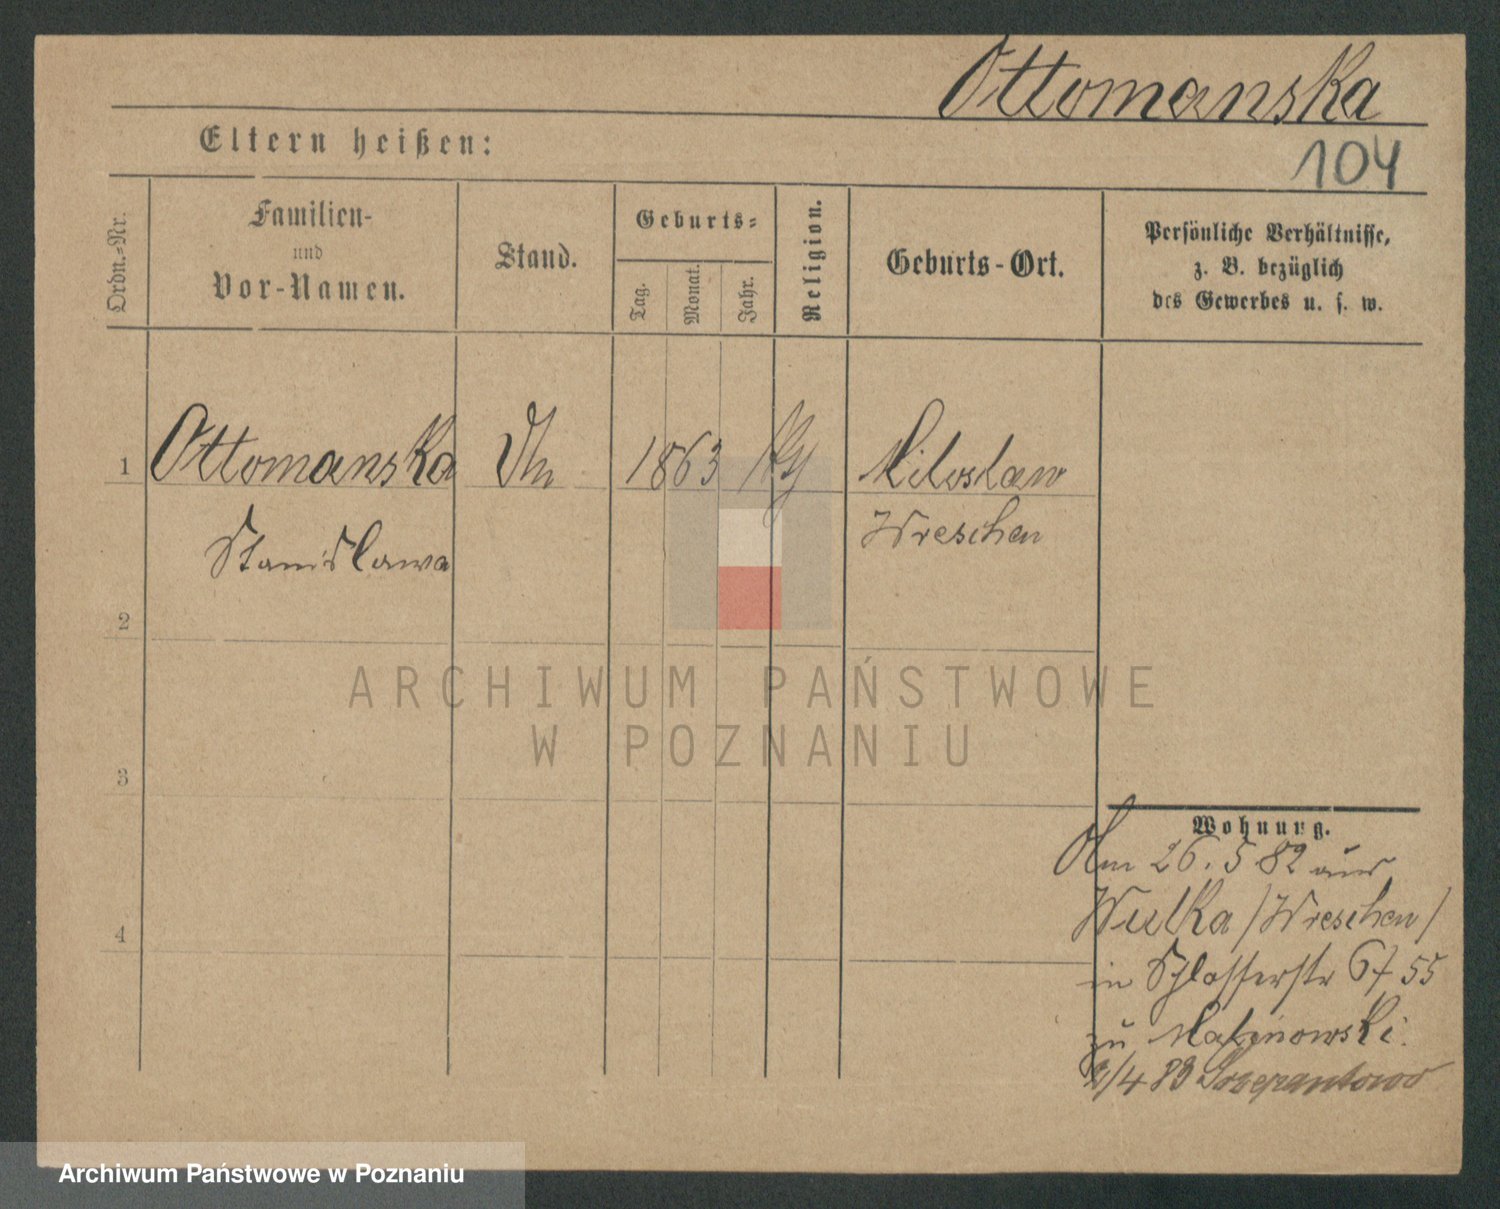 Ottomanska
104
Eltern heißen:
Ordn.-Nr.
Familien-
und
Vor-Namen.
Stand.
Geburts-
Tag.
Monat.
Jahr.
Religion.
Geburts-Ort.
Persönliche Verhältnisse,
z. B. bezüglich
des Gewerbes u. s. w.
1
Ottomanska
1863
Miloslaw
Stanislawa
Wreschen
2
ARCHIWUM PAŃSTWOWE
W POZNANIU
3
4
Wohnung.
Am 26. 5 82 aus
Wulka /Wreschen/
in Schlosserstr 6/ 55
zu Malinowski.
2/4 83
Archiwum Państwowe w Poznaniu